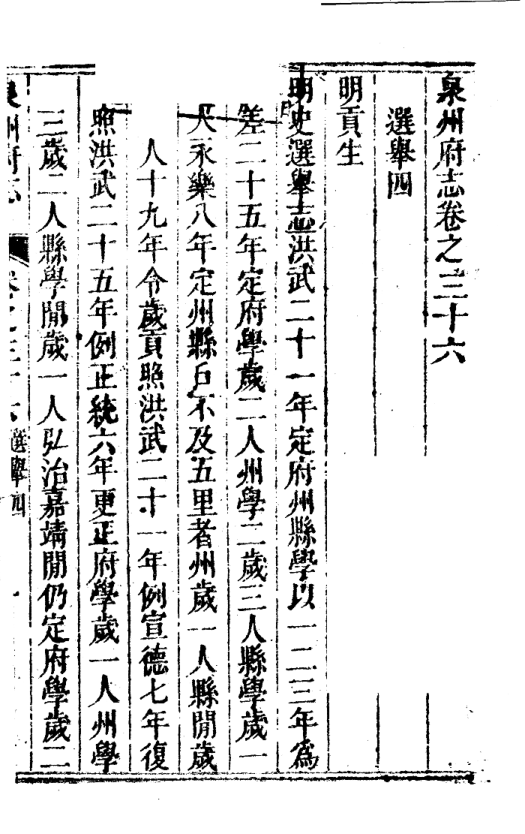 泉州府志卷之三十六
選舉四
明貢生
明史選舉志洪武二十一年定府州縣學以一二三年爲
差二十五年定府學歲二人州學二歲三人縣學歲一
人永樂八年定州縣戶不及五里者州歲一人縣閒歲
一人十九年令歲貢照洪武二十一年例宣德七年復
照洪武二十五年例正統六年更正府學歲一人州學
三歲二人縣學閒歲一人弘治嘉靖閒仍定府學歲二
泉州府志 卷之三十六 選舉四 一